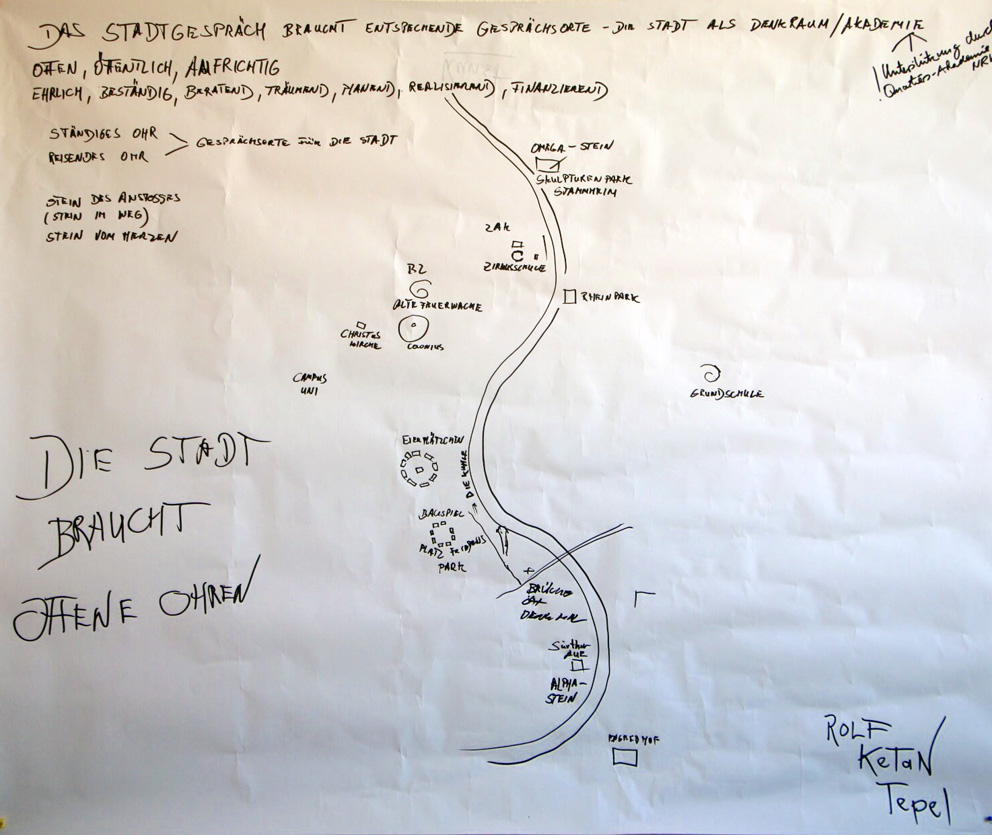 DAS STADTGESPRÄCH BRAUCHT ENTSPECHENDE GESPRÄCHSORTE - DIE STADT ALS DENKRAUM/AKADEMIE
OFFEN, ÖFFENTLICH, AUFRICHTIG
EHRLICH, BESTÄNDIG, BERATEND, TRÄUMEND, PLANEND, REALISIEREND, FINANZIEREND
Unterstützung durch
Quartiers-Akademie
NRW
STÄNDIGES OHR
REISENDES OHR
GESPRÄCHSORTE FÜR DIE STADT
STEIN DES ANSTOSSES
(STEIN IM WEG)
STEIN VOM HERZEN
OMEGA-STEIN
SKULPTUREN PARK
STAMMHEIM
ZAK
ZIRKUSSCHULE
BZ
ALTE FEUERWACHE
RHEINPARK
CHRISTUS
KIRCHE
COLONIUS
CAMPUS
UNI
GRUNDSCHULE
EIERPLÄTZCHEN
BAUSPIEL
PLATZ FRIEDENS
PARK
DIE
BRÜCKE
DENKMAL
Sürther
AUE
ALPHA-
STEIN
DIE STADT
BRAUCHT
OFFENE OHREN
ROLF
KETAN
Tepel